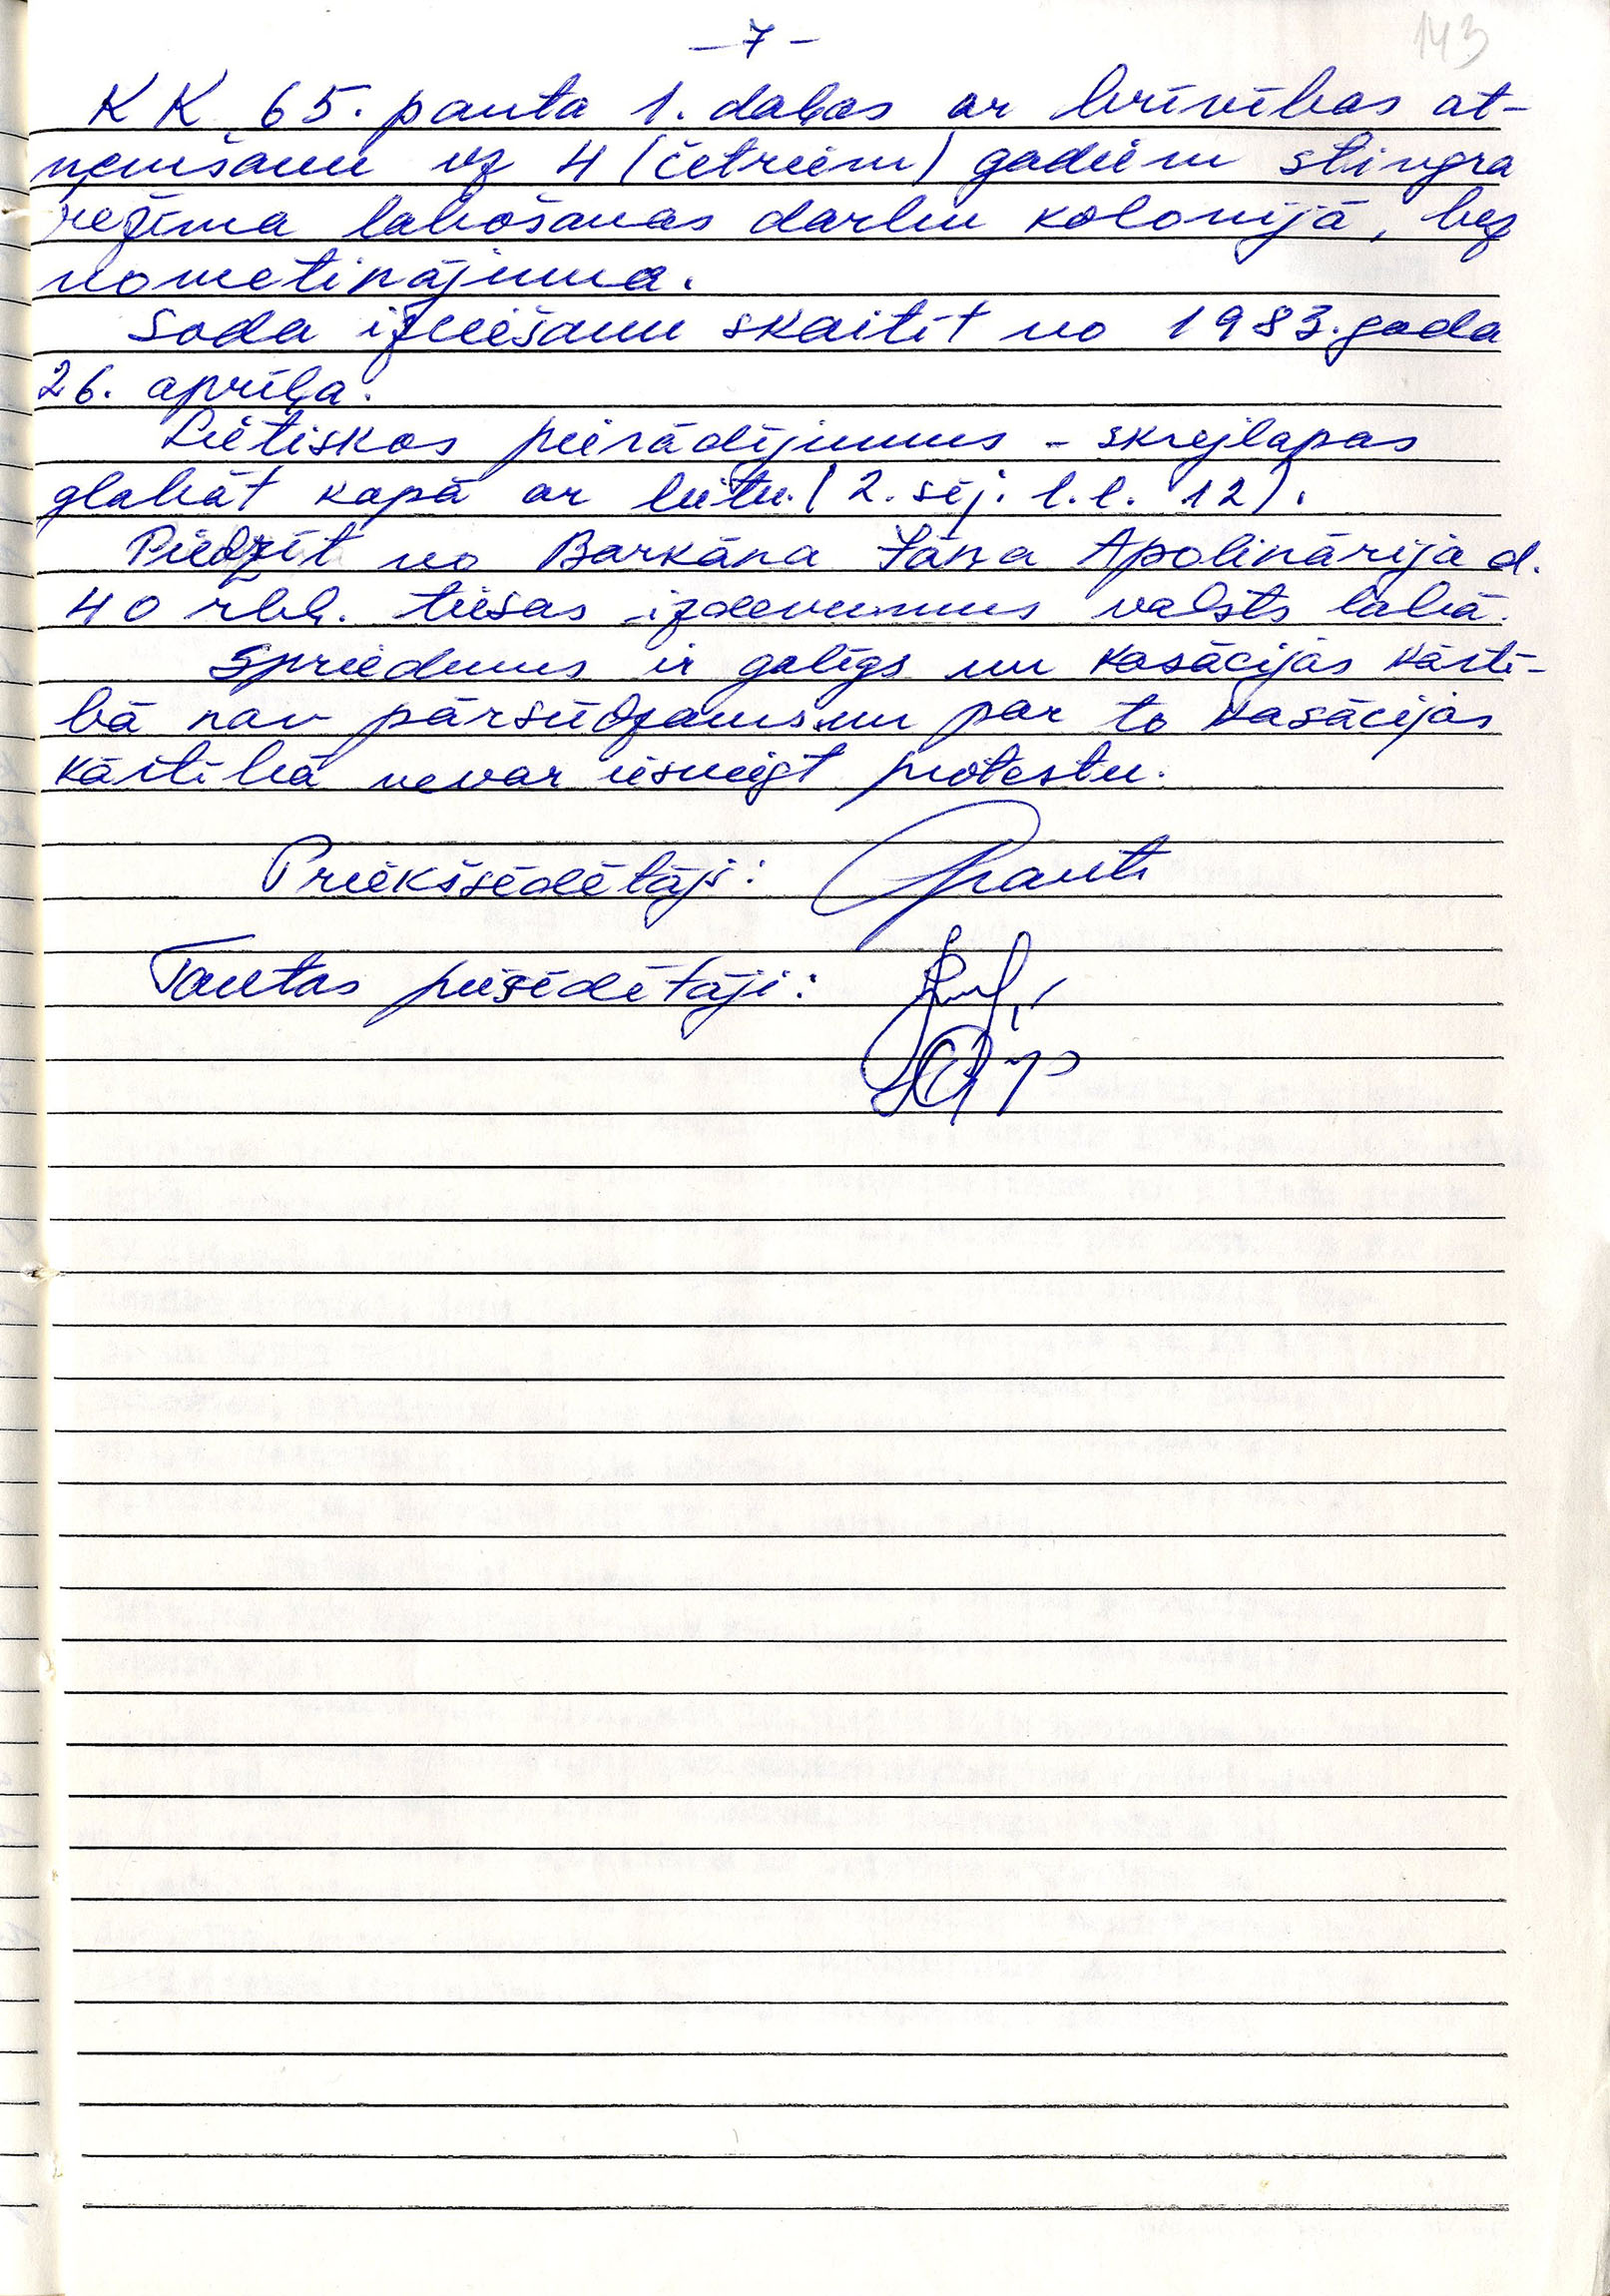 – 7 –
143
KK 65. panta 1. daļas ar brīvības at-
ņemšanu uz 4 (četriem) gadiem stingra
režīma labošanas darbu kolonijā, bez
nometinājuma.
Soda izciešanu skaitīt no 1983. gada
26. aprīļa.
Lietiskos pierādījumus - skrejlapas
glabāt kopā ar lietu. (2. sēj. l.l. 12).
Piedzīt no Barkāna Jāņa Apolinārija d.
40 rbļ. tiesas izdevumus valsts labā.
Spriedums ir galīgs un kasācijas kārtī-
bā nav pārsūdzams un par to kasācijas
kārtībā nevar iesniegt protestu.
Priekšsēdētājs:
Tautas piesēdētāji: